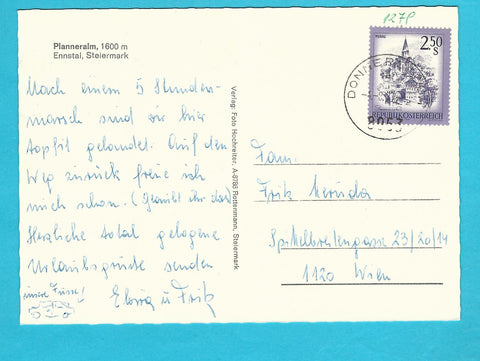 Planneralm, 1600 m
Ennstal, Steiermark
Nach einem 5 Stunden-
marsch sind wir hier
topfit gelandet. Auf den
Weg zurück freue ich
mich schon. (Glaubt ihr das)
Herzliche total gelogene
Urlaubsgrüsse senden
Elvira u Fritz
unsere Füsse!
Verlag: Foto Hochreiter, A-8786 Rottenmann, Steiermark
127P
2,50
S
REPUBLIK ÖSTERREICH
DONNERS
8953
Fam.
Fritz
Spittelbreitengasse 23/20/14
1120 Wien